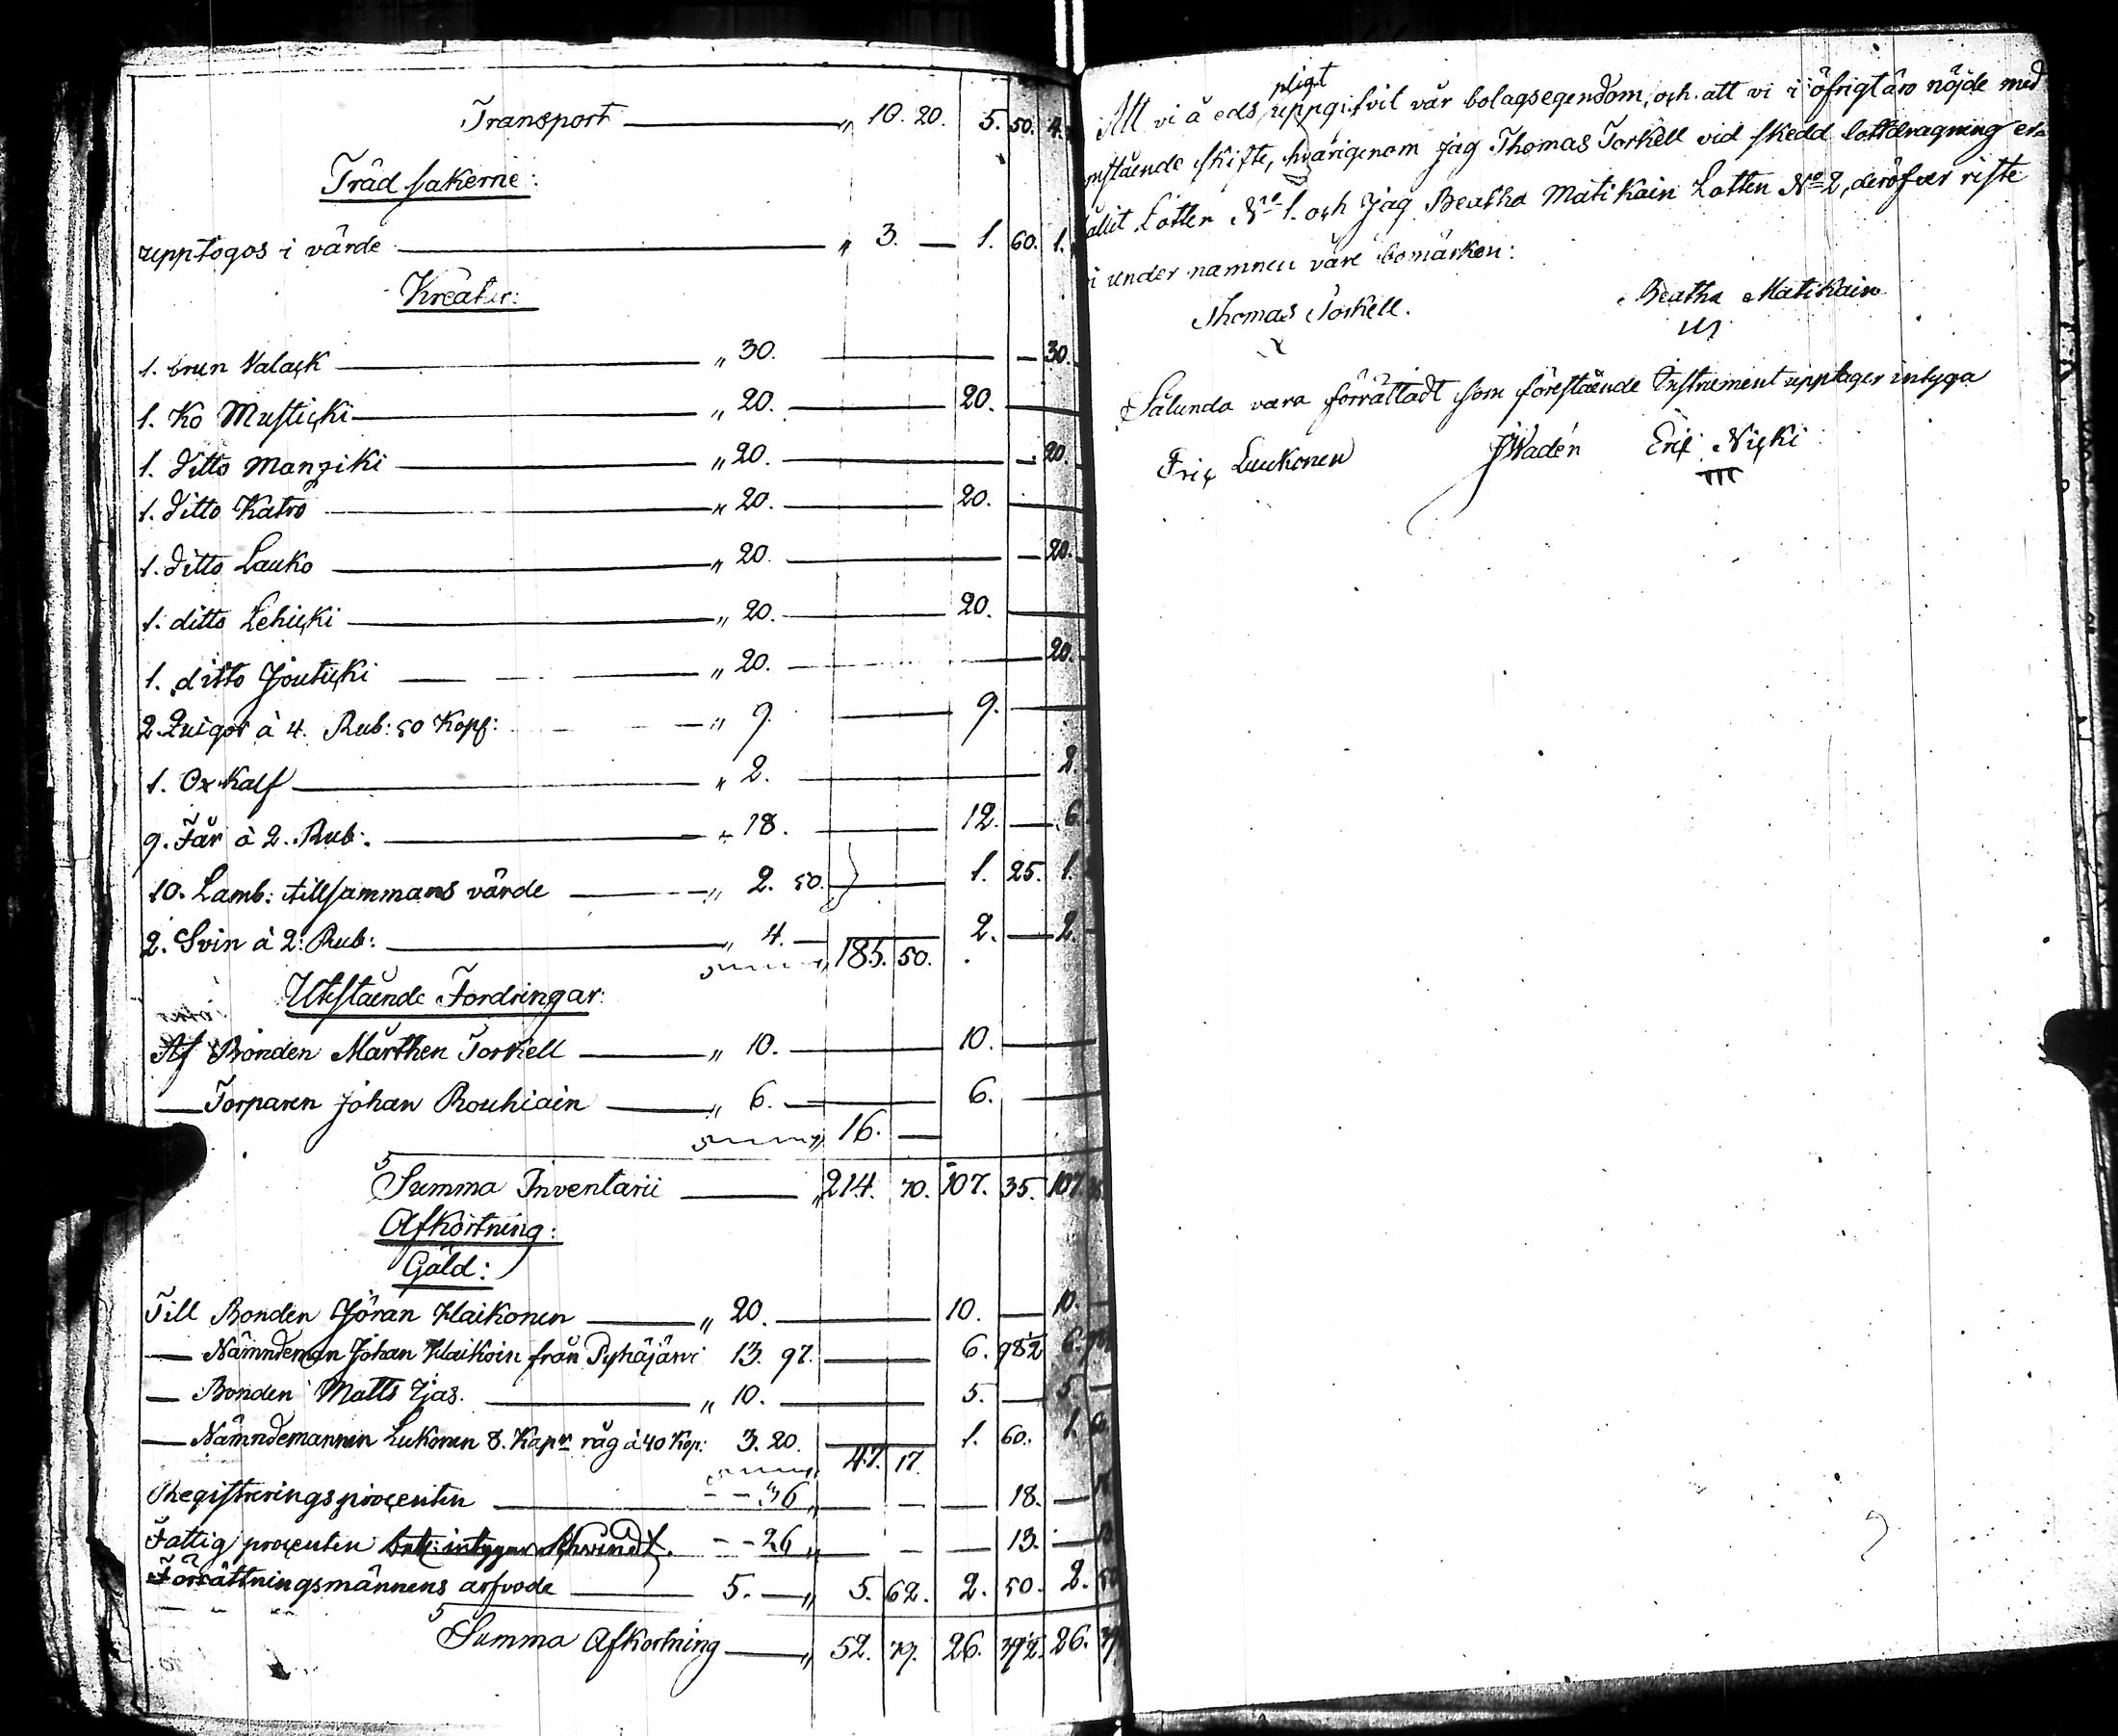 Transport — „ 10. 20. 5. 50. 4.
Träd sakerne:
upptogos i värde — „ 3. — 1. 60. 1.
Kreatur:
1. brun Valack — „ 30. — 30.
1. Ko Musticki — „ 20. — 20. —
1. Ditto Manziki — „ 20. — 20.
1. Ditto Katro — „ 20. — 20. —
1. Ditto Lauko — „ 20. — 20.
1. ditto Lehicki — „ 20. — 20. —
1. ditto Jouticki — „ 20. — 20.
2. Quigor à 4. Rub: 50 Kopf: — „ 9. — 9. —
1. Ox Kalf — „ 2. — 2.
9. Får à 2. Rub: — „ 18. — 12. — 6.
10. Lamb: tillsammans värde — „ 2. 50. — 1. 25. 1.
2. Svin à 2: Rub: — „ 4. — 2. — 2.
185. 50.
Utestående Fordringar:
Af Bonden Mårthen Torkell — „ 10. — 10. —
— Torparen Johan Rouhiain — „ 6. — 6. —
„ 16. —
Summa Inventarii — „ 214. 70. 107. 35. 107.
Afkortning:
Gäld:
Till Bonden Jöran Haikonen — „ 20. — 10. — 10. —
— Nämndeman Johan Haikoin från Pyhäjärvi 13. 97. — 6. 98½ 6. 98½
— Bonden Matts Ijas. — „ 10. — 5. — 5. —
— Nämndemannen Lukonen 8. Kapr råg à 40 Kop: 3. 20. — 1. 60. 1. 60
„ 47. 17.
Registreringsprocenten — 36 „ — — — 18. — 18
Fattig procenten — 26 „ — — — 13. — 13
Förrättningsmännens arfvode — 5. — „ 5. 62. 2. 50. 2. 50
Summa Afkortning — „ 52. 79. 26. 39½. 26. 39
pligt
Att vi å eds uppgifvit vår bolagsegendom, och att vi i öfrigt äro nöjde med
omstående skifte, hvarigenom jag Thomas Torkell vid skedd lottdragning er-
hållit Lotten No 1. och Jag Beatha Matikain Lotten No 2, deröfver riste
vi under namnen våre bomärken:
Thomas Torkell. Beatha Matikain
Sålunda vara förrättadt som förestående Instrument upptager intyga
Eric Luukonen JWadén Eric Nicki